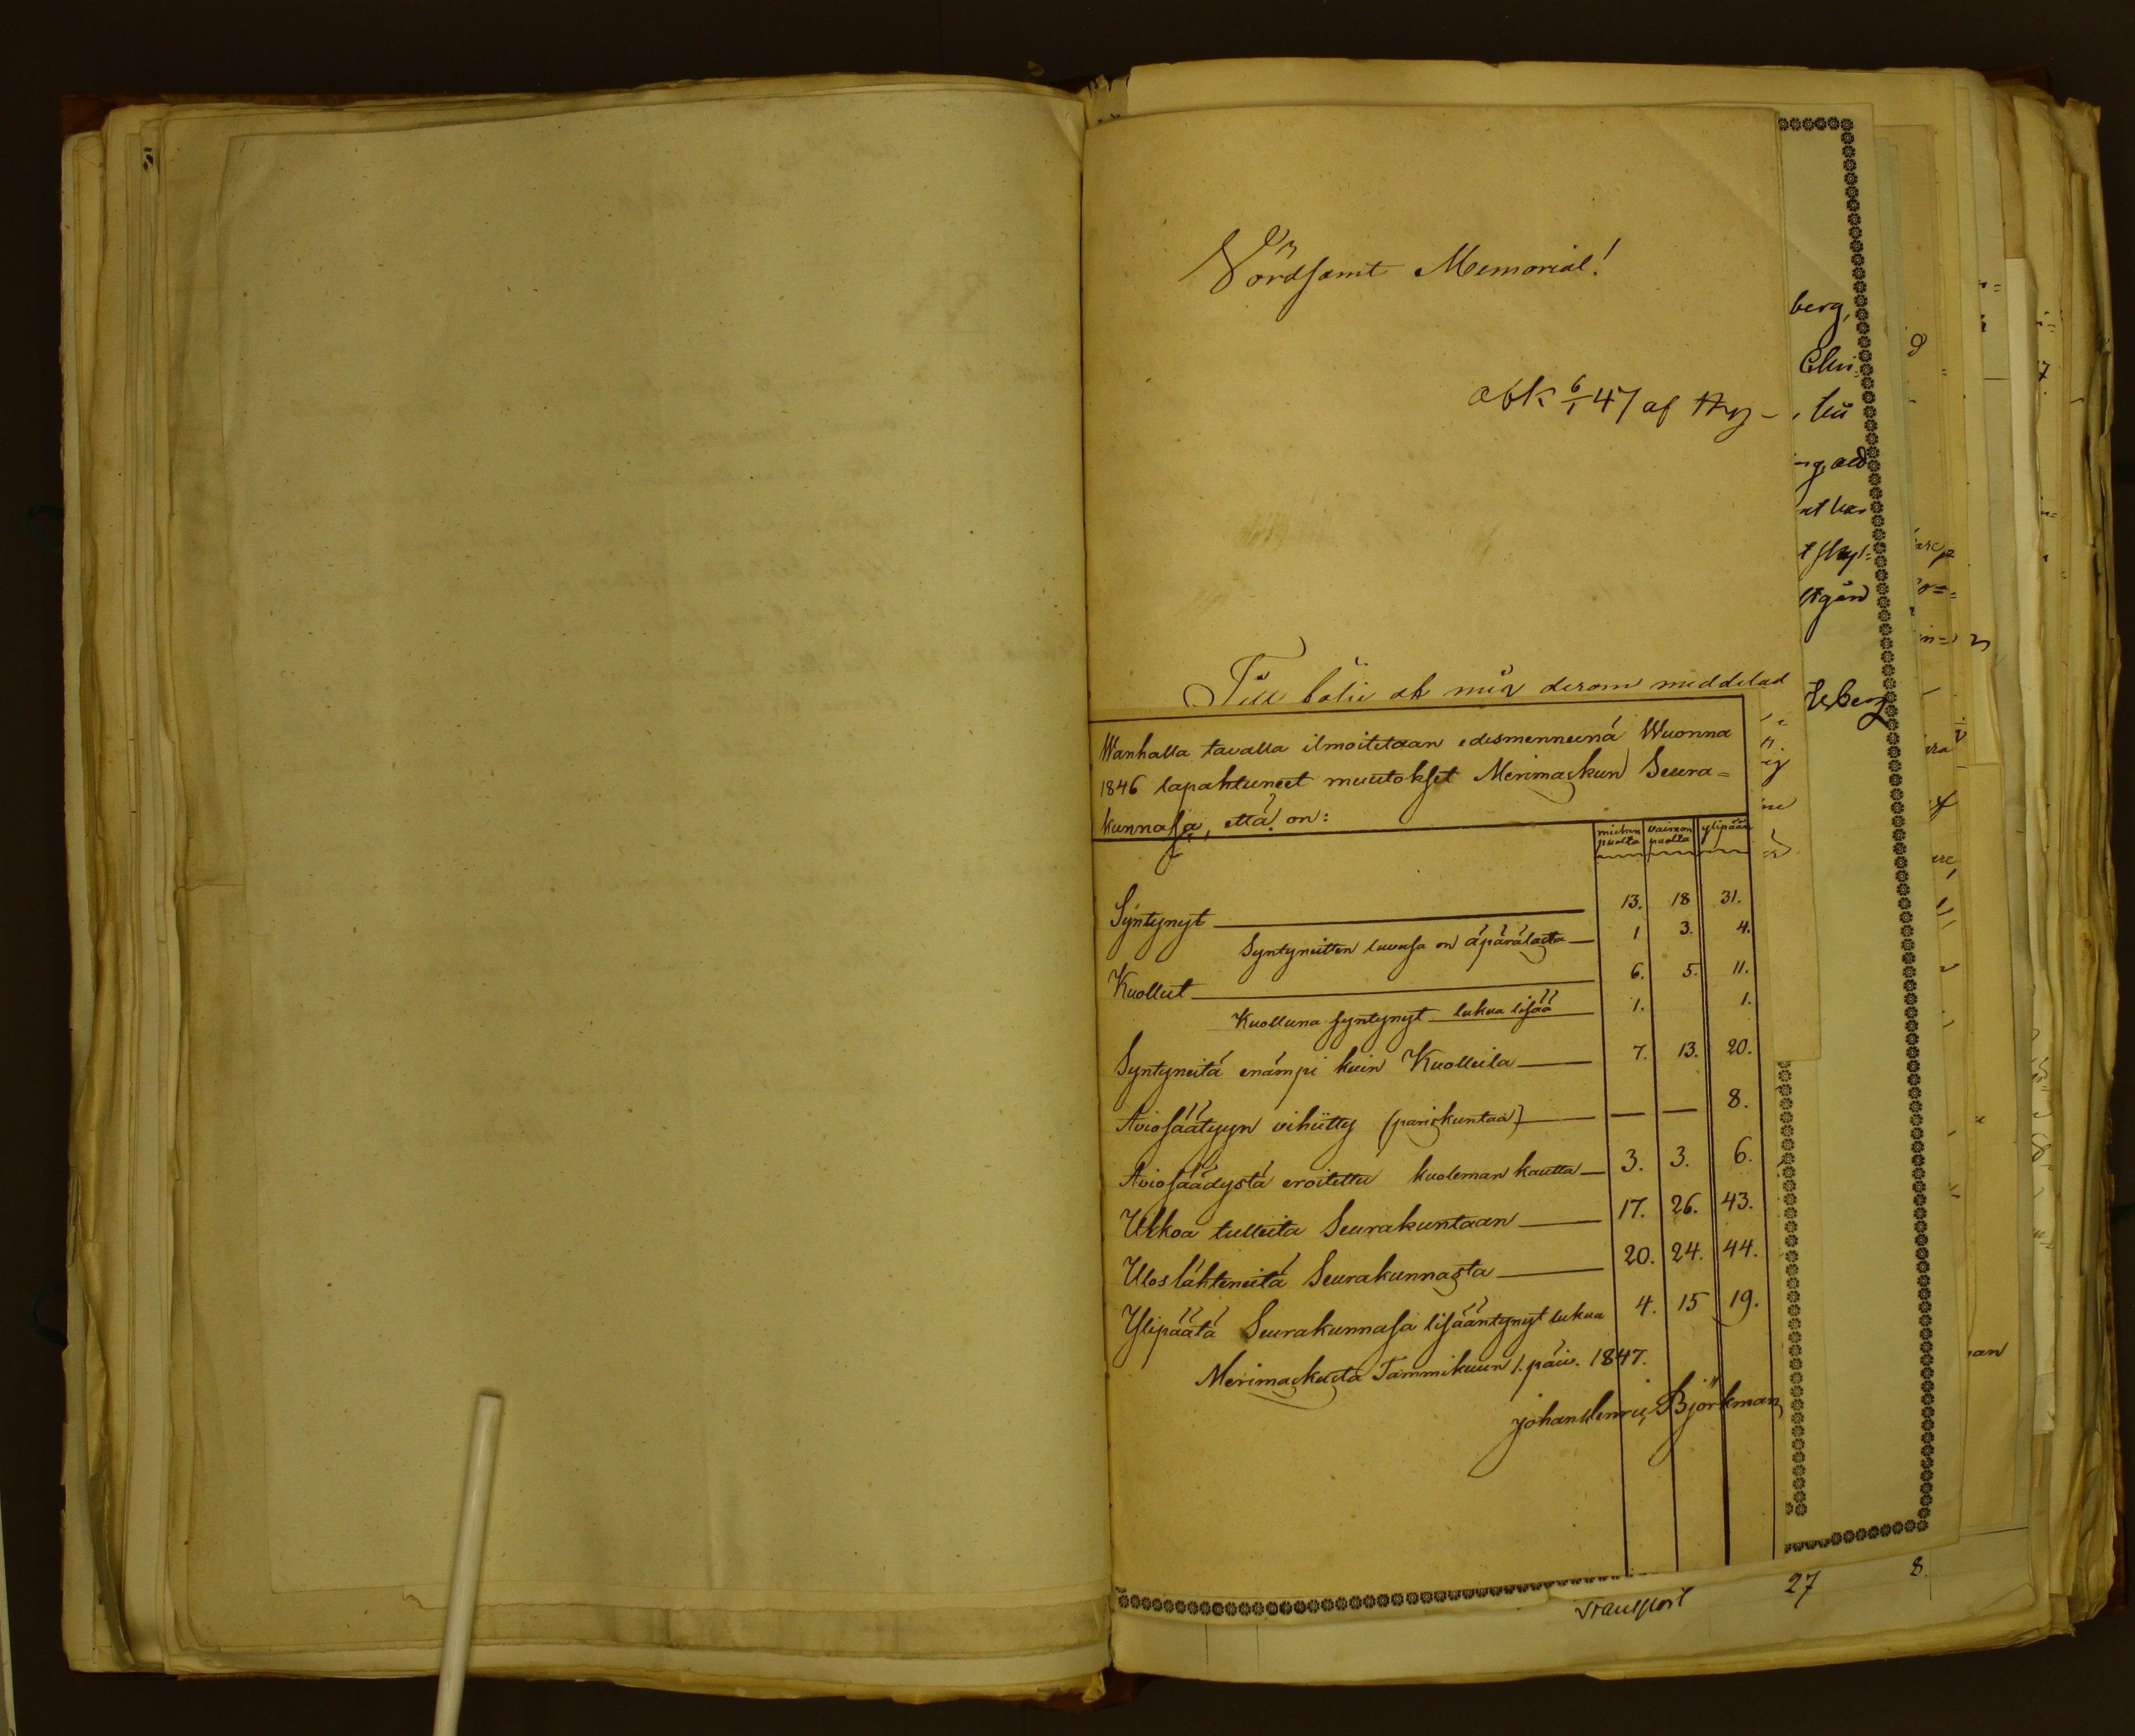 Vördsamt Memorial!
af
Till följe af mig derom meddelad
Wanhalla tavalla ilmoitetaan edesmenneenä Wuonna
1846 tapahtuneet muutokset Merimaskun Seura=
kunnasa, että on:
miehen puolta vaimon puolta ylipään
Syntynyt 13. 18 31.
Syntyneitten luvusa on äpärälasta 1 3. 4.
Kuollut 6. 5. 11.
Kuolluna syntynyt lukua lisää 1. 1.
Syntyneitä enämpi kuin Kuolleita 7. 13. 20.
Aviosäätyyn vihitty (pariskuntaa) — — 8.
Aviosäädystä eroitettu kuoleman kautta 3. 3. 6.
Ulkoa tulleita Seurakuntaan 17. 26. 43.
Ulos lähteneitä Seurakunnasta 20. 24. 44.
Ylipäätä Seurakunnasa lisääntynyt lukua 4. 15 19.
Merimaskusta Tammikuun 1. päiv. 1847.
Johan Henric Björkman
berg,
Transport 27 8.